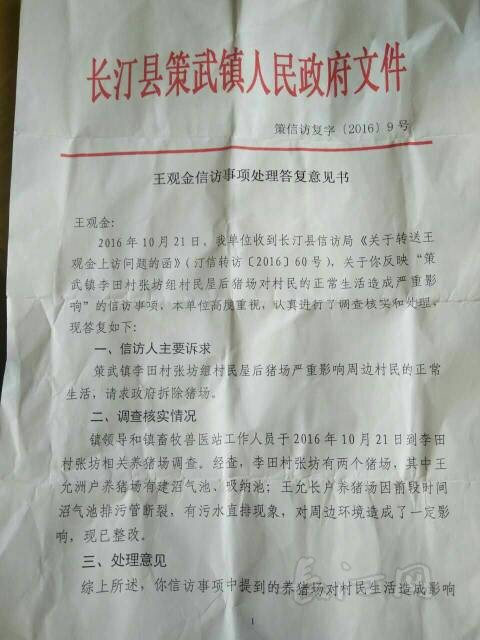 长汀县策武镇人民政府文件
策信访复字〔2016〕9号
王观金信访事项处理答复意见书
王观金:
2016年10月21日,我单位收到长汀县信访局《关于转送王
观金上访问题的函》(汀信转访〔2016〕60号),关于你反映“策
武镇李田村张坊组村民屋后猪场对村民的正常生活造成严重影
响”的信访事项,本单位高度重视,认真进行了调查核实和处理,
现答复如下:
一、信访人主要诉求
策武镇李田村张坊组村民屋后猪场严重影响周边村民的正常
生活,请求政府拆除猪场。
二、调查核实情况
镇领导和镇畜牧兽医站工作人员于2016年10月21日到李田
村张坊相关养猪场调查。经查,李田村张坊有两个猪场,其中王
允洲户养猪场有建沼气池、吸纳池;王允长户养猪场因前段时间
沼气池排污管断裂,有污水直排现象,对周边环境造成了一定影
响,现已整改。
三、处理意见
综上所述,你信访事项中提到的养猪场对村民生活造成影响
长江网
1